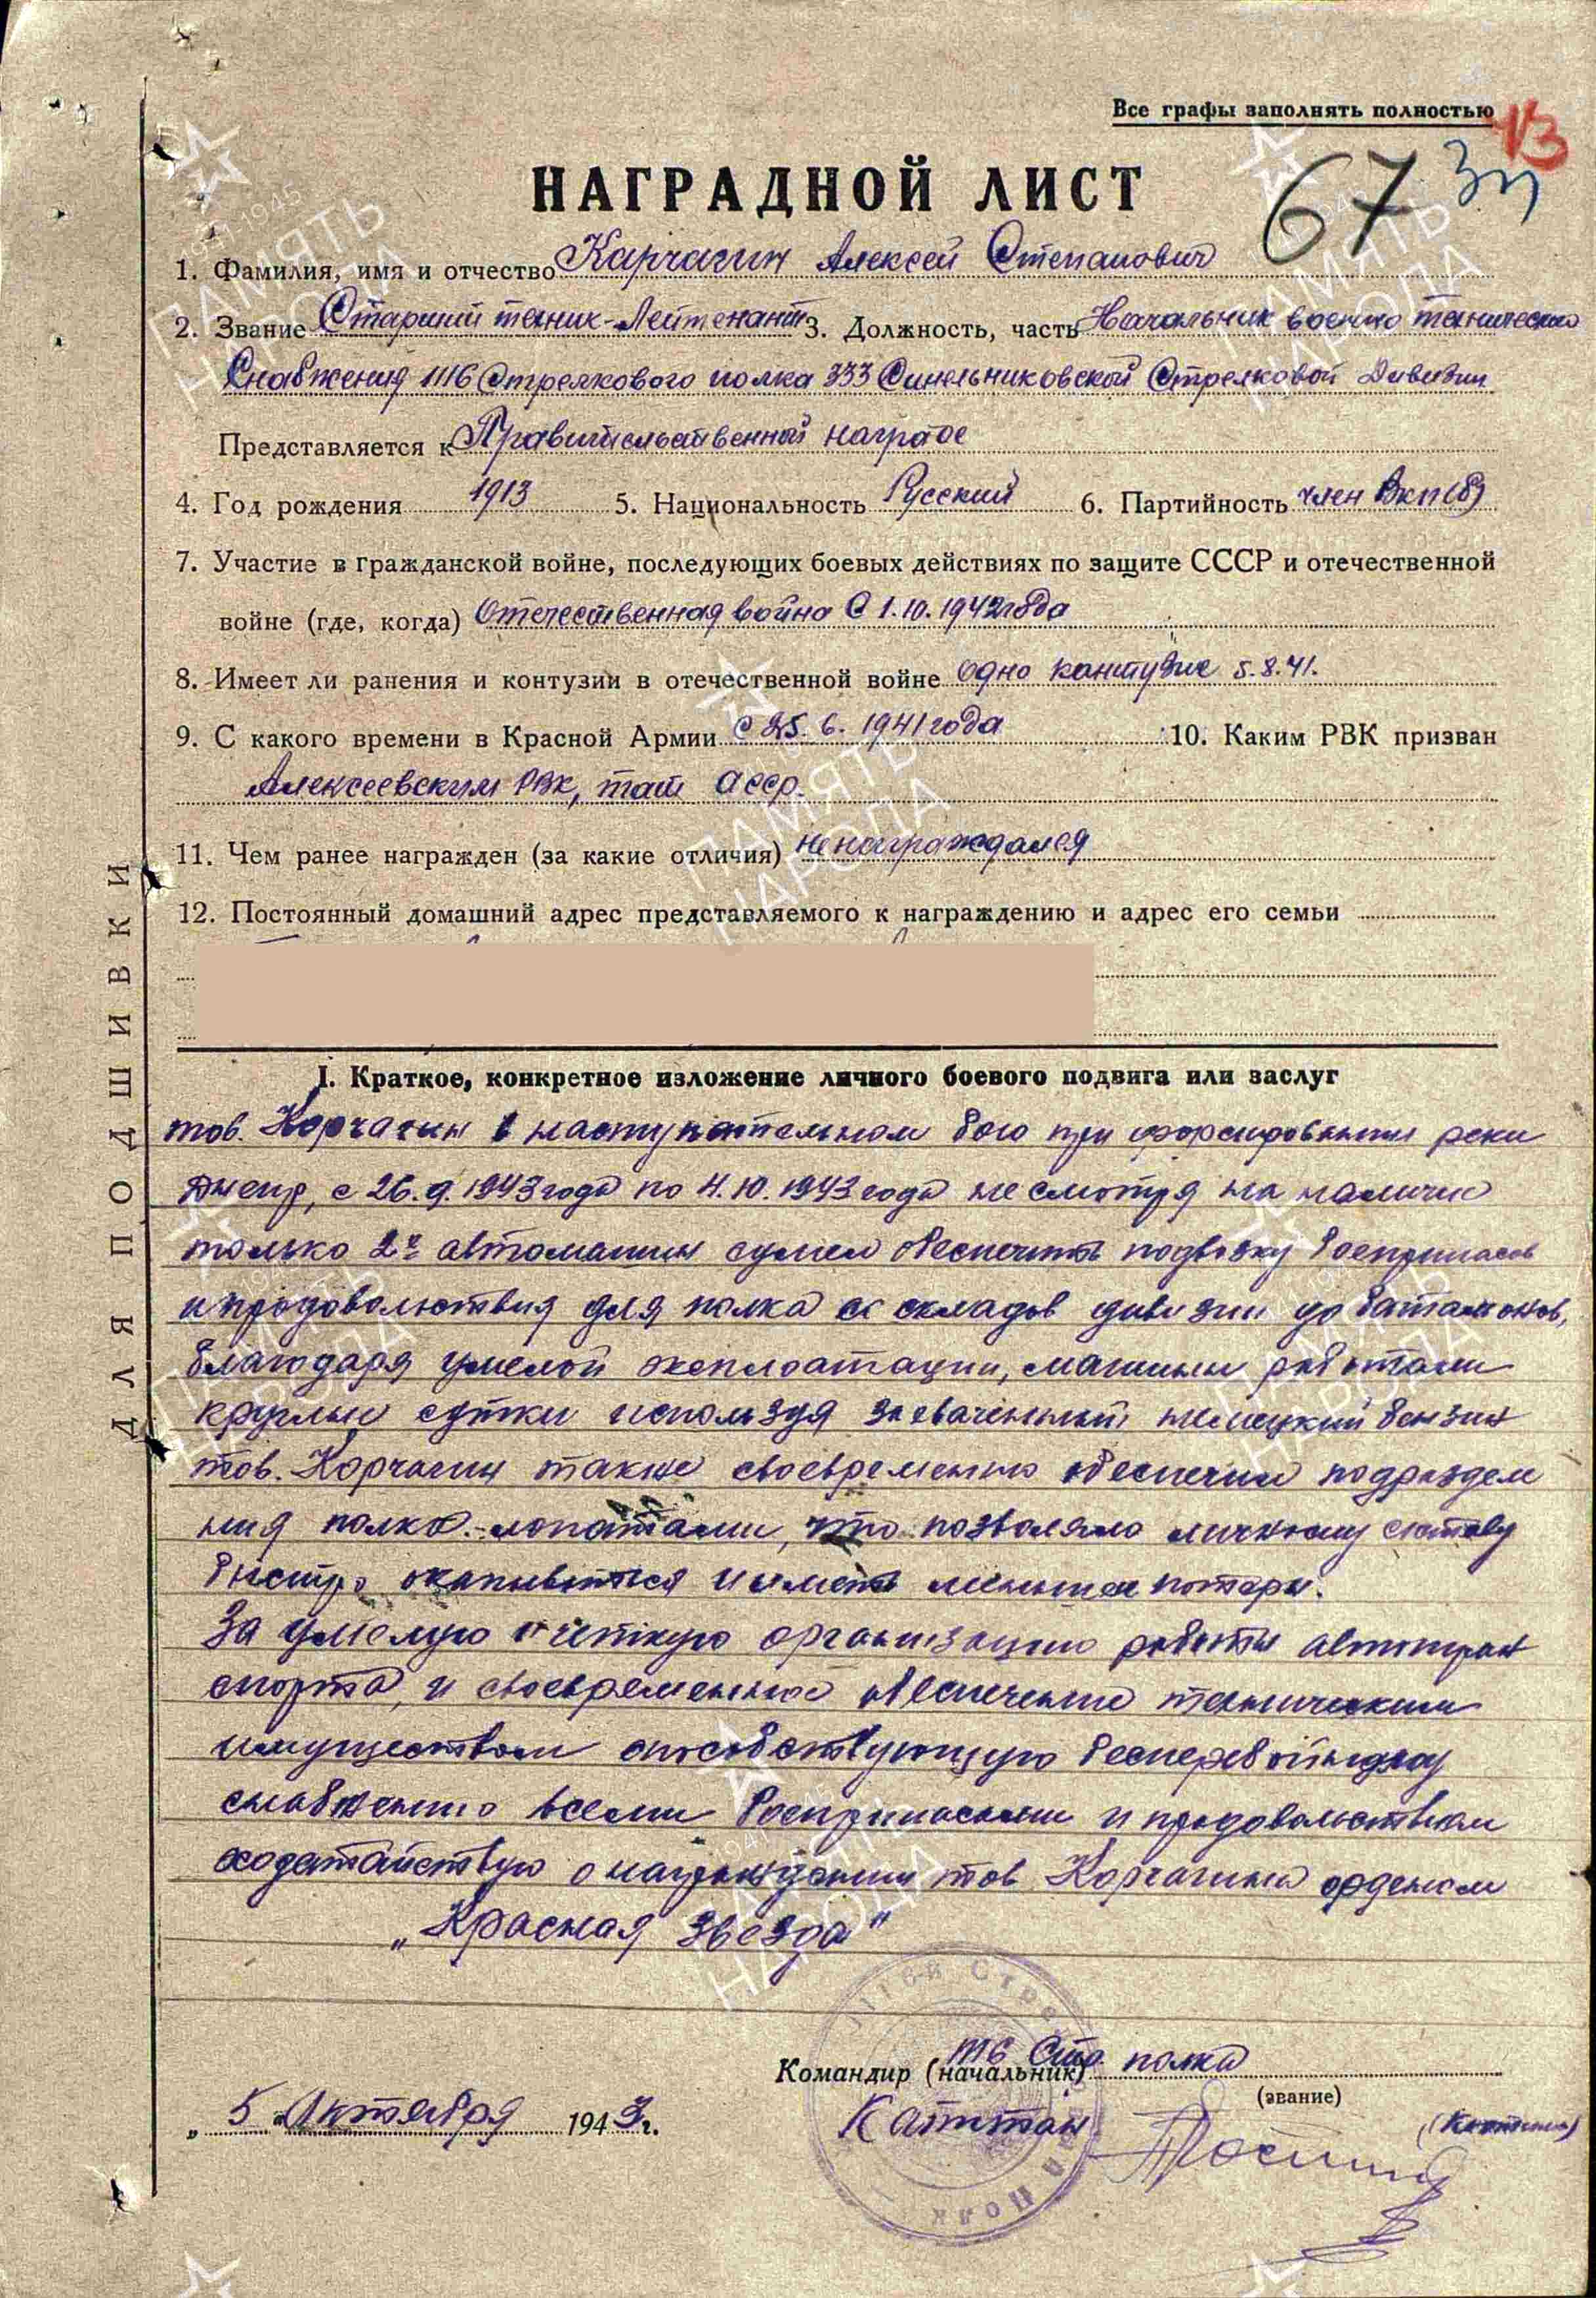 Все графы заполнять полностью
13
67
НАГРАДНОЙ ЛИСТ
1. Фамилия, имя и отчество Карчагин Алексей Степанович
2. Звание Старший техник-Лейтенант 3. Должность, часть Начальник военно технического
Снабжения 1116 Стрелкового полка 333 Синельниковской Стрелковой Дивизии
Представляется к Правительственной награде
4. Год рождения 1913 5. Национальность Русский 6. Партийность член ВКП(б)
7. Участие в гражданской войне, последующих боевых действиях по защите СССР и отечественной
войне (где, когда) Отечественная война С 1.10.1942 года
8. Имеет ли ранения и контузии в отечественной войне Одно контузие 5.8.41.
9. С какого времени в Красной Армии с 25.6.1941 года 10. Каким РВК призван
Алексеевским РВК, тат асср.
11. Чем ранее награжден (за какие отличия) не награждался
12. Постоянный домашний адрес представляемого к награждению и адрес его семьи
ДЛЯ ПОДШИВКИ
I. Краткое, конкретное изложение личного боевого подвига или заслуг
тов. Корчагин в наступательном бою при форсировании реки
Днепр, с 26.9.1943 года по 4.10.1943 года не смотря на наличие
только 2х автомашин сумел обеспечить подвозку боеприпасов
и продовольствия для полка со складов дивизии до батальонов,
благодаря умелой эксплоатации, машины работали
круглые сутки используя захваченный немецкий бензин
тов. Корчагин также своевременно обеспечил подразделе
ния полка лопатами, что позволяло личному составу
быстро окапываться и иметь меньшее потерь.
За умелую и четкую организацию работы автотран
спорта, и своевременное обеспечение техническим
имуществом способствующую бесперебойному
снабжению всеми боеприпасами и продовольствием
ходатайствую о награждении тов Корчагина орденом
„Красная звезда"
Командир (начальник) 1116 Стр. полка
(звание)
„5" Октября 1943 г.
Капитан
ПАМЯТЬ НАРОДА
1941-1945